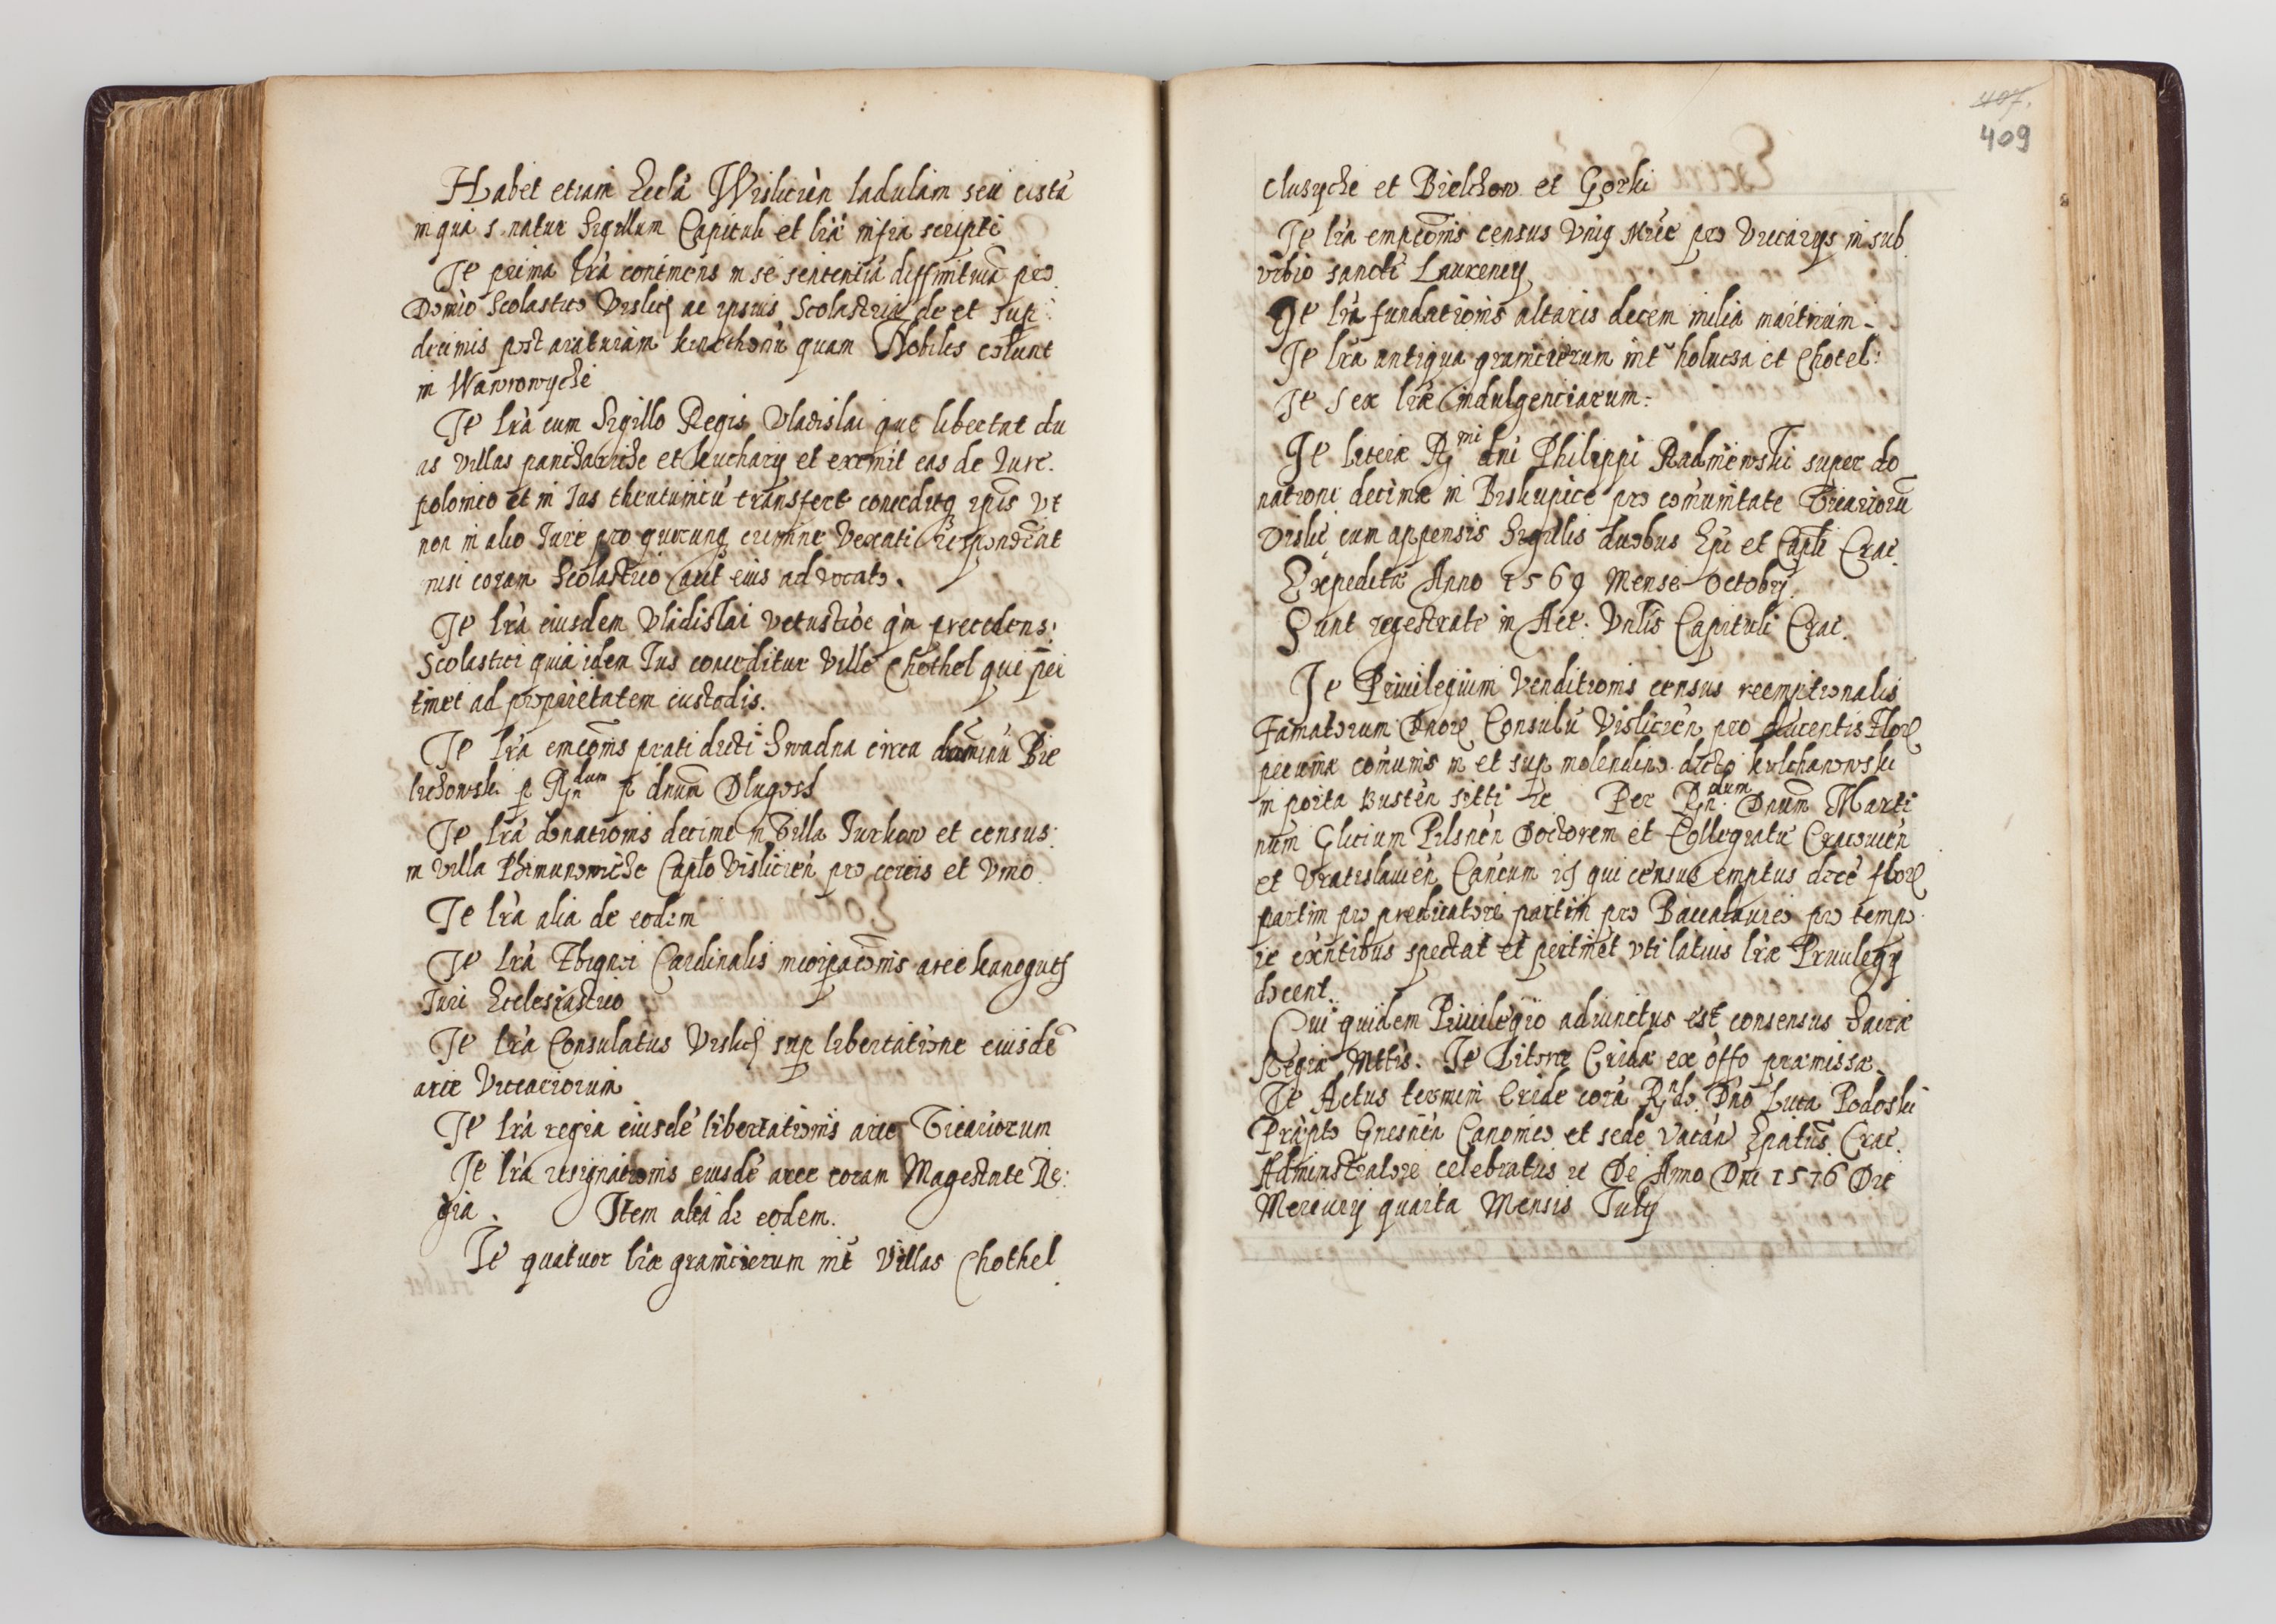 Habet etiam Eccla Wisliciēn ladulam seu cistā
in qua s. natur Sigillum Capituli et lrae infra scripte
It prima lra continens in se sentenciā diffinitiuā pro
Domio Scolastico Visliceń ac ipsius Scolastria de et sup
decimis post araturam kmethonū quam Nobiles colunt
in Wawrowyche
It lra cum Sigillo Regis Vladislai que libertat du
as villas panchariche et kuchary et exemit eas de Iure
polonico et in Ius theutunicū transfert conceditq ipis vt
non in alio Iure pro quocunq crimine vexati respondeāt
nisi coram Scolastico aut eius advocato.
It lra eiusdem Vladislai vetustior qm precedens
Scolastici quia idem Ius conceditur Ville Chothel que per
tinet ad proprietatem custodis.
It lra emcōnis prati dicti Swadna circa dominū Bie
lichowski p Rndum p dnum Dlugoss
It lra donationis decime in Villa Iurkow et census
in villa Chimunowiche Caplo Visliciēn pro cereis et vino
It lra alia de eodem
It lra Zbignei Cardinalis incorpacōnis aree kanoguts
Iuri Ecclesiastico
It lra Consulatus Vislics sup libertatione eiusdē
aree Vicariorum
It lra regia eiusdē libertationis aree Vicariorum
It lra resignationis eiusdē aree coram Magestate Re
gia . Item alia de eodem.
It quatuor lrae granicierum int Villas Chothel
407.
409
Clusyche et Bielchow et Gorki
It lra empcōnis census vnig Mrce pro Vicarijs in sub
vrbio sancti Laurencij
It lra fundationis altaris decem milia martirum
It lra antiqua granicierum int holucsa et Chotel
It sex lrae indulgenciarum
It literae Rmi dni Philippi Padniewski super do
natione decimae in Biskupice pro comunitate Vicariorū
Vislic cum appensis Sigillis duobus Epi et Capli Crac
Expedita Anno 1569 Mense Octobrj.
Sunt regestrate in Act. Vnlis Capituli Crac.
It Priuilegium venditionis census reemptionalis
Famatorum Dnorum Consulū Visliciēn pro ducentis Flor
pecuniae comunis in et sup molendino dicto kulchawowski
in porta Bustēn siti re Per Rndum Dnum Marti
num Glicium Pilsnēn Doctorem et Collegiatū Cracouiēn
et Vratislauiēn Canonicum is qui census emptus decē flor
partim pro predicatore partim pro Baccalaureo pro tempo
re exēntibus spectat et pertinet vti latius lrae Priuilegij
docent.
Cui quidem Priuilegio adiunctus est consensus Sacrae
Regiae Mttis. It Litere Cridae ex offo praemissae
It Actus termini Cride corā Rndo Dno Luca Podoski
Praepto Gnesnēn Canonico et sede vacāń Epatus Crac
Administratore celebratus re De Anno Dni 1576 Die
Mercurij quarta Mensis Iulij